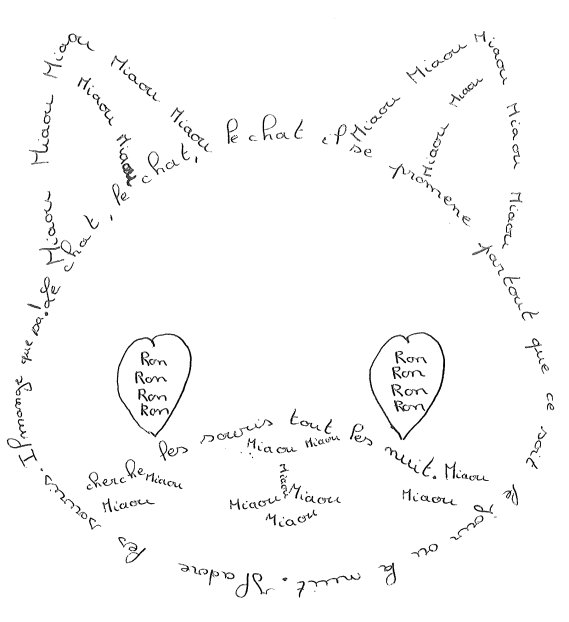 Miaou Miaou Miaou
Miaou Miaou
Miaou Miaou
Miaou Miaou Miaou
Miaou Miaou
Miaou Miaou
Le chat, le chat, le chat il se promene partout que ce soit le jour ou la nuit. Il adore les souris. Il mange que sa!
Ron
Ron
Ron
Ron
Ron
Ron
Ron
Ron
cherche les souris tout les nuit.
Miaou Miaou
Miaou
Miaou
Miaou
Miaou Miaou
Miaou
Miaou
Miaou